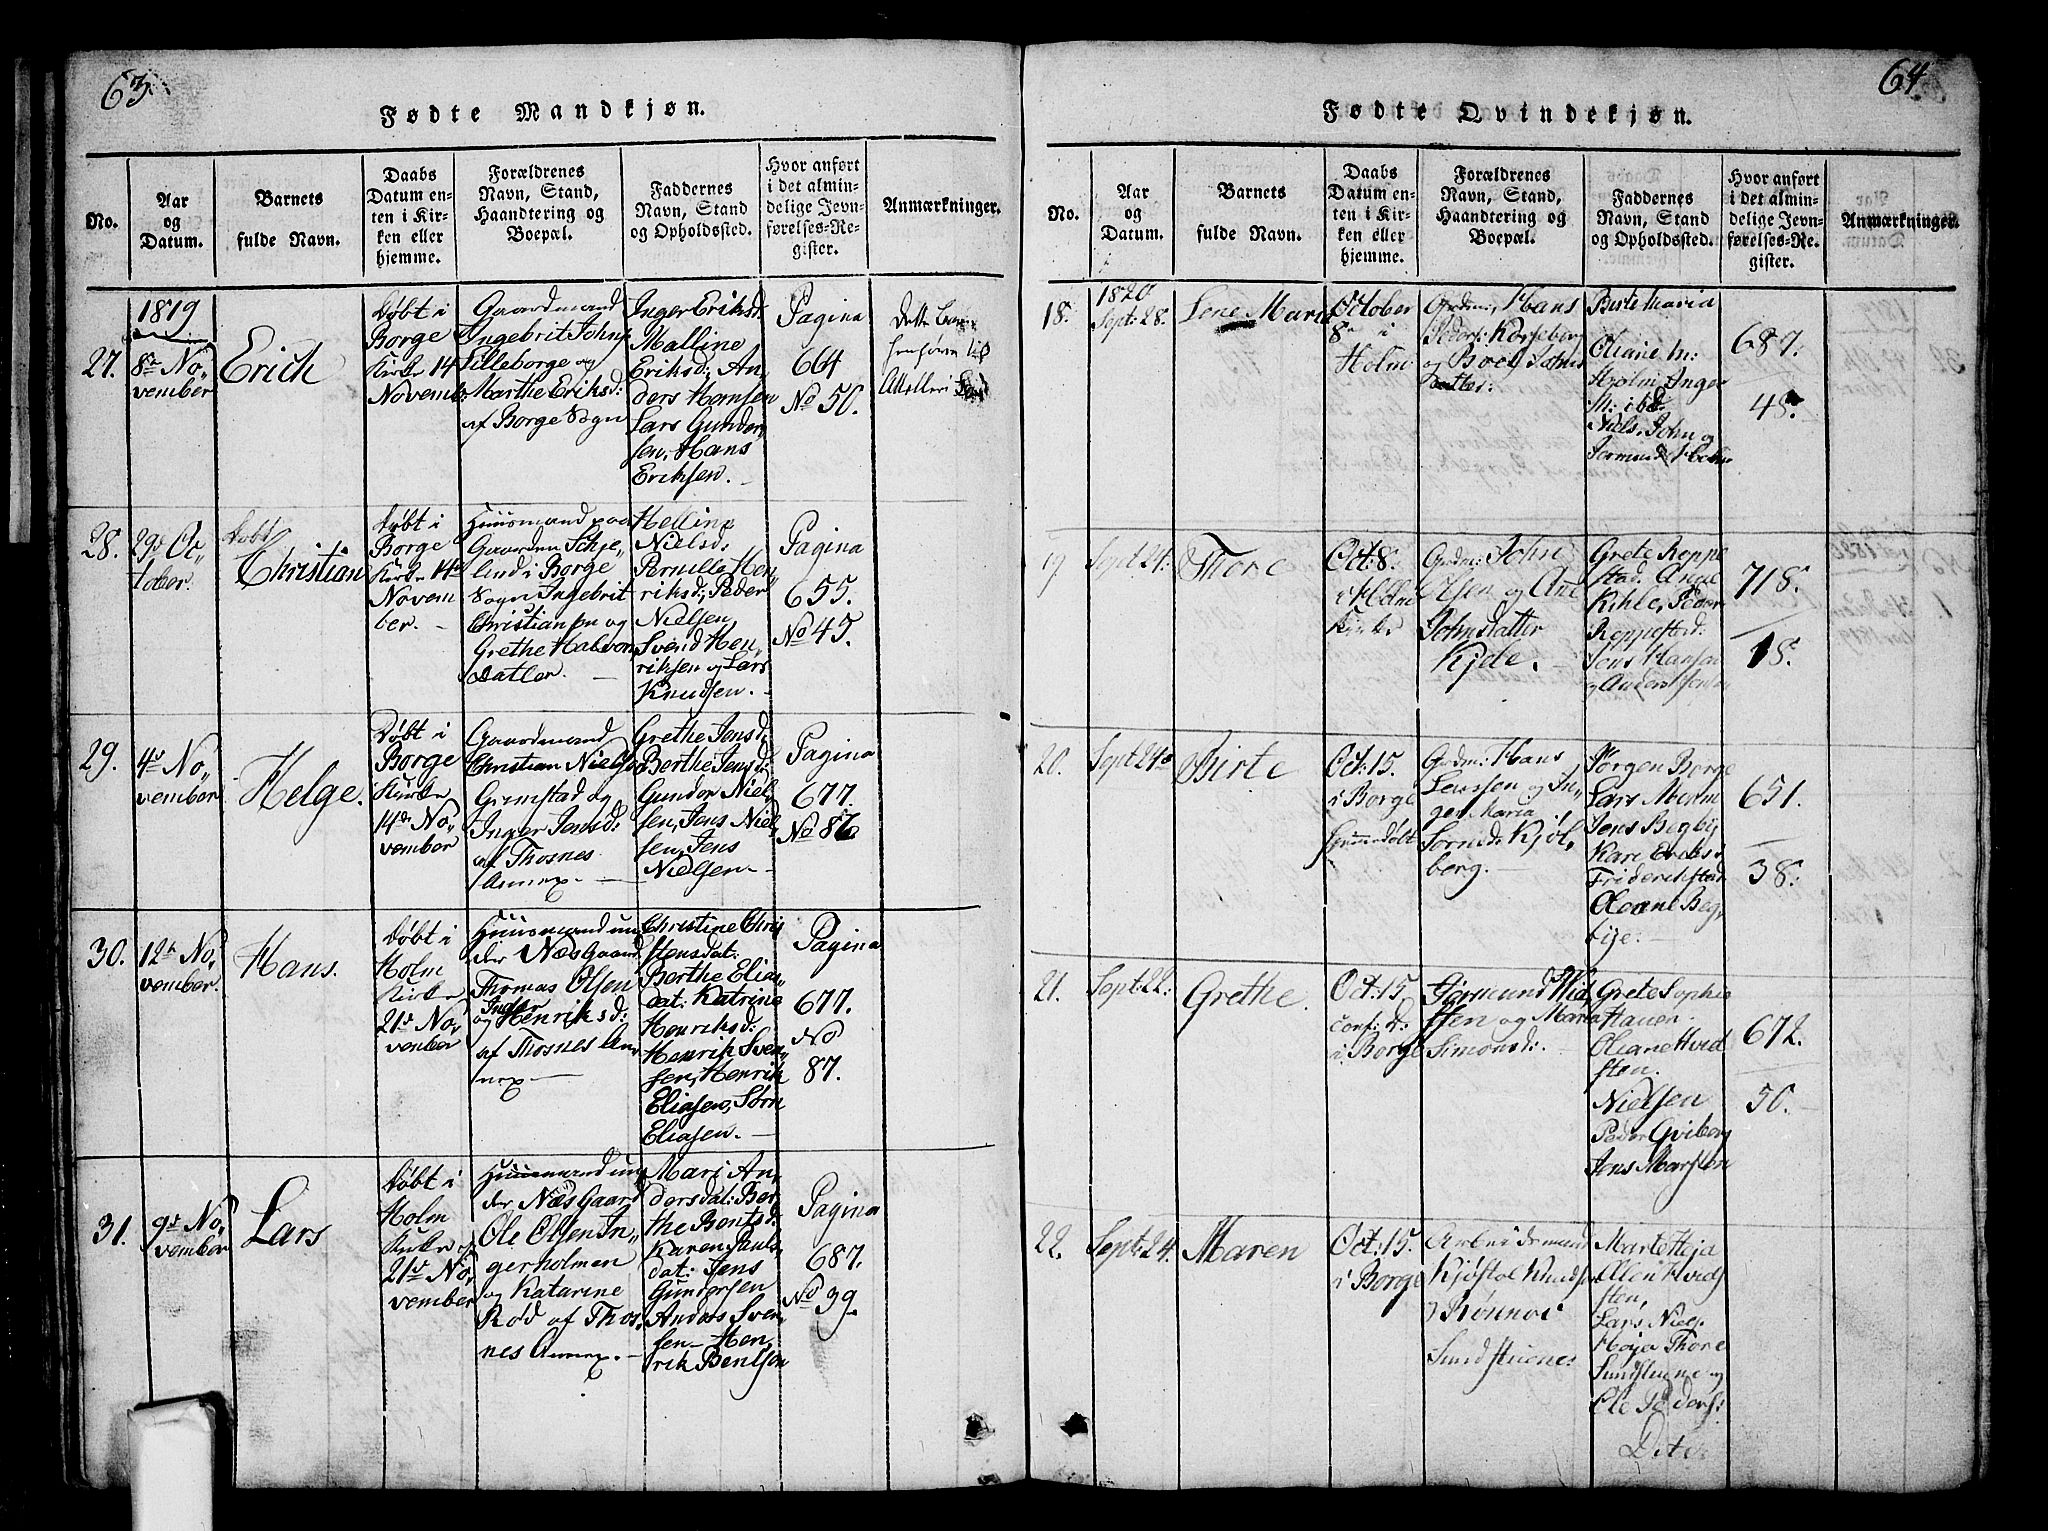 63
Fødte Mandkjøn.
No.
Aar
og
Datum.
Barnets
fulde Navn.
Daabs
Datum en-
ten i Kir-
ken eller
hjemme.
Forældrenes
Navn, Stand,
Haandtering og
Boepæl.
Faddernes
Navn, Stand
og Opholdssted.
Hvor anført
i det almin-
delige Jevn-
førelses-Re-
gister.
Anmærkninger.
1819
27.
8de No,,
vember
Erich
Døbt i
Borge
Kirke 14
Novemb
Gaardmand
Ingebrit Johns
Lilleborge og
Marthe Eriksd:
af Borge Sogn
Inger Eriksd.
Malline
Eriksd: An,,
ders Hansen
Lars Gunder,,
sen, Hans
Eriksen.
Pagina
664
No 50.
Dette
henføres til
28.
29de Oc,,
tober.
Døbt
Christian
Døbt i
Borge
Kirke 14de
Novem
ber.
Huusmand paa
Gaarden Schje,,
lind i Borge
Sogn Ingebrit
Christiansen og
Grethe Halvors
Datter.
Helline
Nielsd.
Pernille Hen,,
riksd:, Peder
Nielsen
Svend Hen,,
riksen og Lars
Knudsen.
Pagina
655.
No 45.
29.
4de No,,
vember
Helge.
Døbt i
Borge
Kirke
14de No,,
vember
Gaardmand
Christian Niels
Grimstad og
Inger Jensd:
af Thosnes
Annex.
Grethe Jensd:
Berthe Jensd:
Gunder Niel,,
sen, Jens Niel,,
sen, Jens
Nielsen
Pagina
677.
No 86
30.
12te No,,
vember.
Hans.
Døbt i
Holm
Kirke
21de No,,
vember
Huusmand un,,
der Næs Gaard
Thomas Olsen
og Inger Henriksd:
af Thosnes An,,
nex
Christine Chris
tensdat:
Berthe Elias,,
dat: Katrine
Henriksd:
Henrik Sven,,
sen, Henrik
Eliasen, Sørn
Eliasen.
Pagina
677.
No
87.
31.
9de No,,
vember
Lars
Døbt i
Holm
Kirke
21de No,,
vember
Huusmand un,,
der Næs Gaard
Ole Olsen In,,
gerholmen
og Katarine
Rød af Thos,,
nes Annex.
Mari An,,
dersdat: Ber,,
the Bentsd:
Karen Pauls
dat: Jens
Gundersen
Anders Sven,,
sen Hen,,
rik Bentsen
Pagina
687.
No 39.
64
Fødte Qvindekjøn.
No.
Aar
og
Datum.
Barnets
fulde Navn.
Daabs
Datum en-
ten i Kir-
ken eller
hjemme.
Forældrenes
Navn, Stand,
Haandtering og
Boepæl.
Faddernes
Navn, Stand
og Opholdssted.
Hvor anført
i det almin-
delige Jevn-
førelses-Re-
gister.
Anmærkninger.
1820
18.
Sept: 28.
Lene Maria
October
8de i
Holm
Grdm: Hans
Pedors: Korseberg
og Boel Johns
datter:
Birte Maria
Oliane
Holm Inger
Niels, John og
687.
48.
19.
Sept: 24:
Thore
Oct: 8.
i Holm
Kirke
Grdm: John
Olsen og Ane
Johnsdatter
Kjøle.
Grete Reppe
stad. Ane
Kihle, Peder
Reppestad:
Jens Hansen
og Anders Jensen
718.
18.
20.
Sept: 24de
Birte
Oct: 15.
i Borge
hjemmedøbt
Grdm: Hans
Larsson og In,,
ger Maria
Sørnsd: Kjøl,,
berg.
Jørgen Borge
Lars Moum
Jens Begby
Kari Eriksd:
Friderichstad
Oleane Beg,,
bye.
651.
38.
21.
Sept: 22:
Grethe
Oct: 15.
conf: d:
i Borge
Gjermund Hvid,
sten og Maria
Simonsd:
Grete Sophie
Hauen
Oliane Hvid
sten.
Nielsen
Peder Qviberg
Jens Marsten
672.
50.
22.
Sept: 24.
Maren
Oct: 15.
i Borge
Arbeidsmand
Kjøstol Knudsen
Rønnoi
Sundstuene
Marte Heja
Ellen Hvid
sten,
Lars Niels.
Høja Thore
Sundstuene og
Ole Peders: